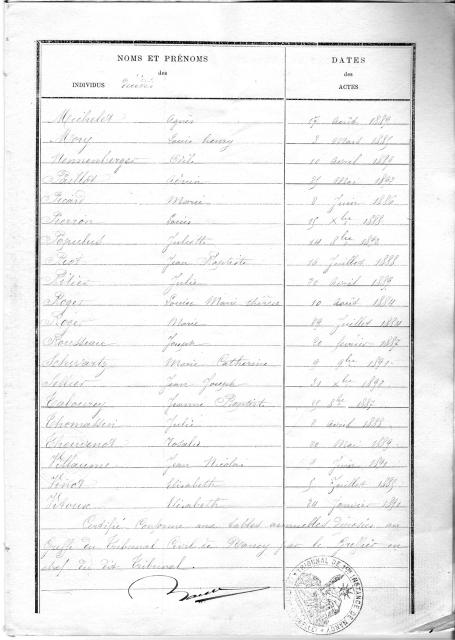 NOMS ET PRÉNOMS DATES
des des
INDIVIDUS ACTES
Michelet Agnès 17 Août 1889
Mory Louis henry 8 Mars 1885
Nennenberger Odile 10 avril 1890
Paillot 25 Mai 1892
Picard Marie 8 Juin 1886
Pierron Louis 15 Xbre 1888
Populus Juliette 14 8bre 1892
Prot Jean Baptiste 16 Juillet 1888
Julie 20 avril 1889
Roger Louise Marie thérèse 10 août 1884
Roger Marie 29 Juillet 1884
Rousseau Joseph 20 février 1887
Schwartz Marie Catherine 9 9bre 1890
Jean Joseph 31 Xbre 1890
Jeanne Baptiste 15 8bre 1887
Thomassin Julie 2 avril 1888
Thouvenot Rosalie 20 Mai 1889
Villaume Jean Nicolas 9 Juin 1890
Vinot Elisabeth 5 Juillet 1885
Vitoux Elisabeth 24 Janvier 1890
Certifié Conforme aux tables annuelles déposées au
Greffe du Tribunal Civil de Nancy par le Greffier en
chef du dit Tribunal.
TRIBUNAL DE 1RE INSTANCE DE NANCY